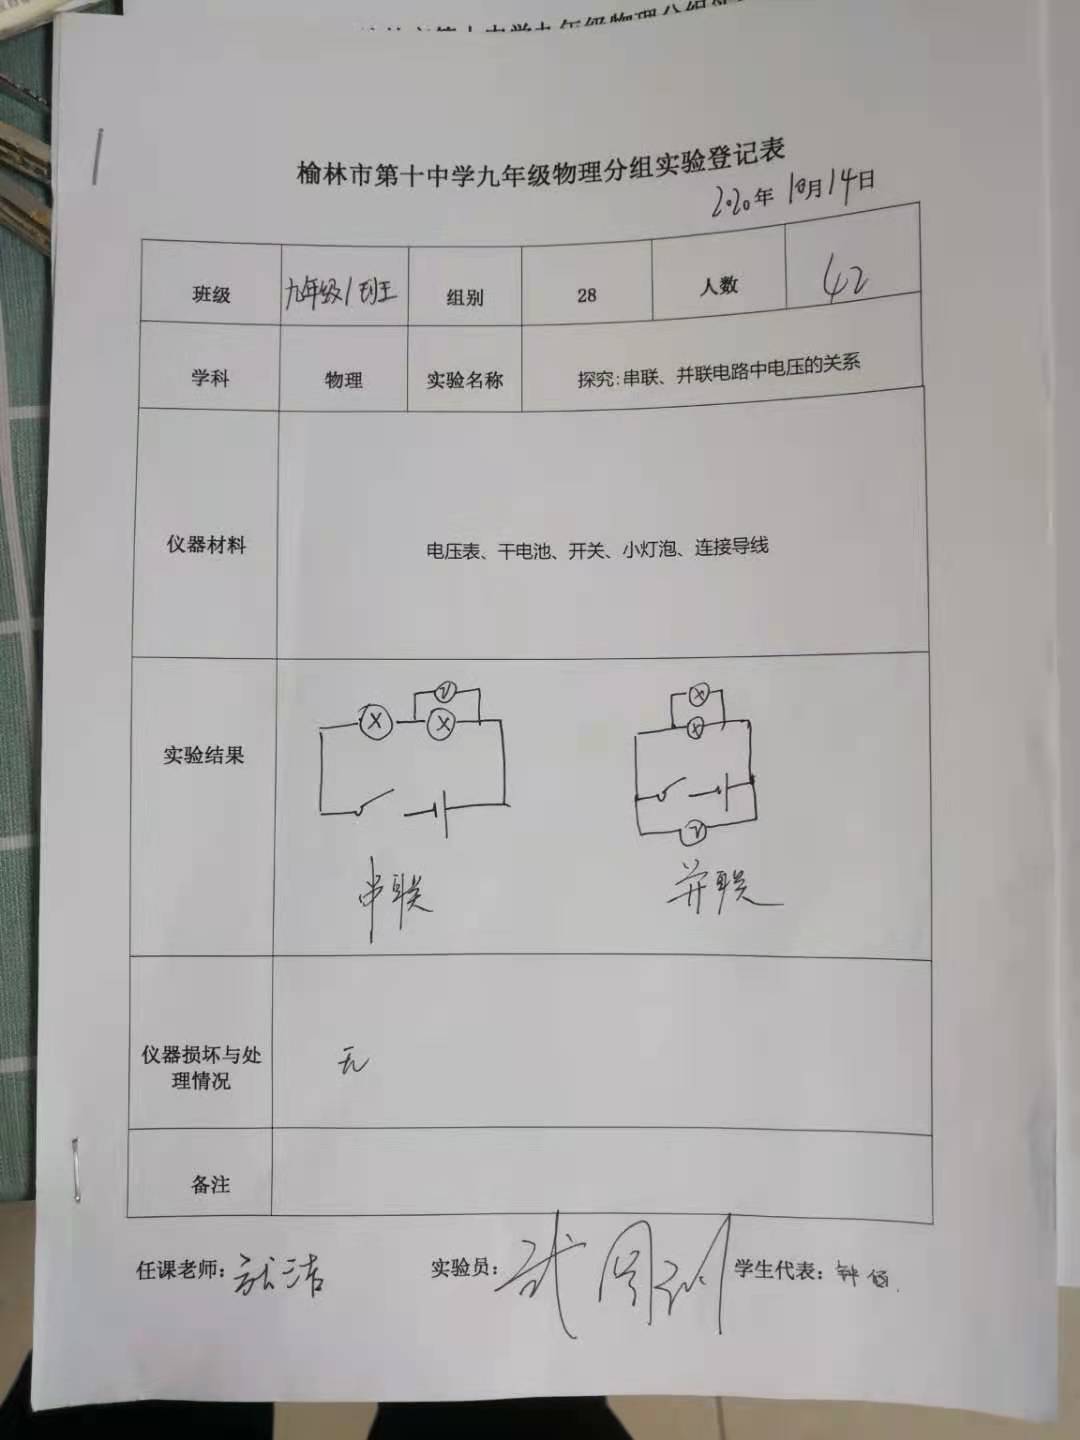 榆林市第十中学九年级物理分组实验登记表
2020年10月14日
班级 九年级1班 组别 28 人数 42
学科 物理 实验名称 探究:串联、并联电路中电压的关系
仪器材料 电压表、干电池、开关、小灯泡、连接导线
实验结果
V
V
串联 并联
仪器损坏与处理情况 无
备注
任课老师: 实验员: 学生代表: